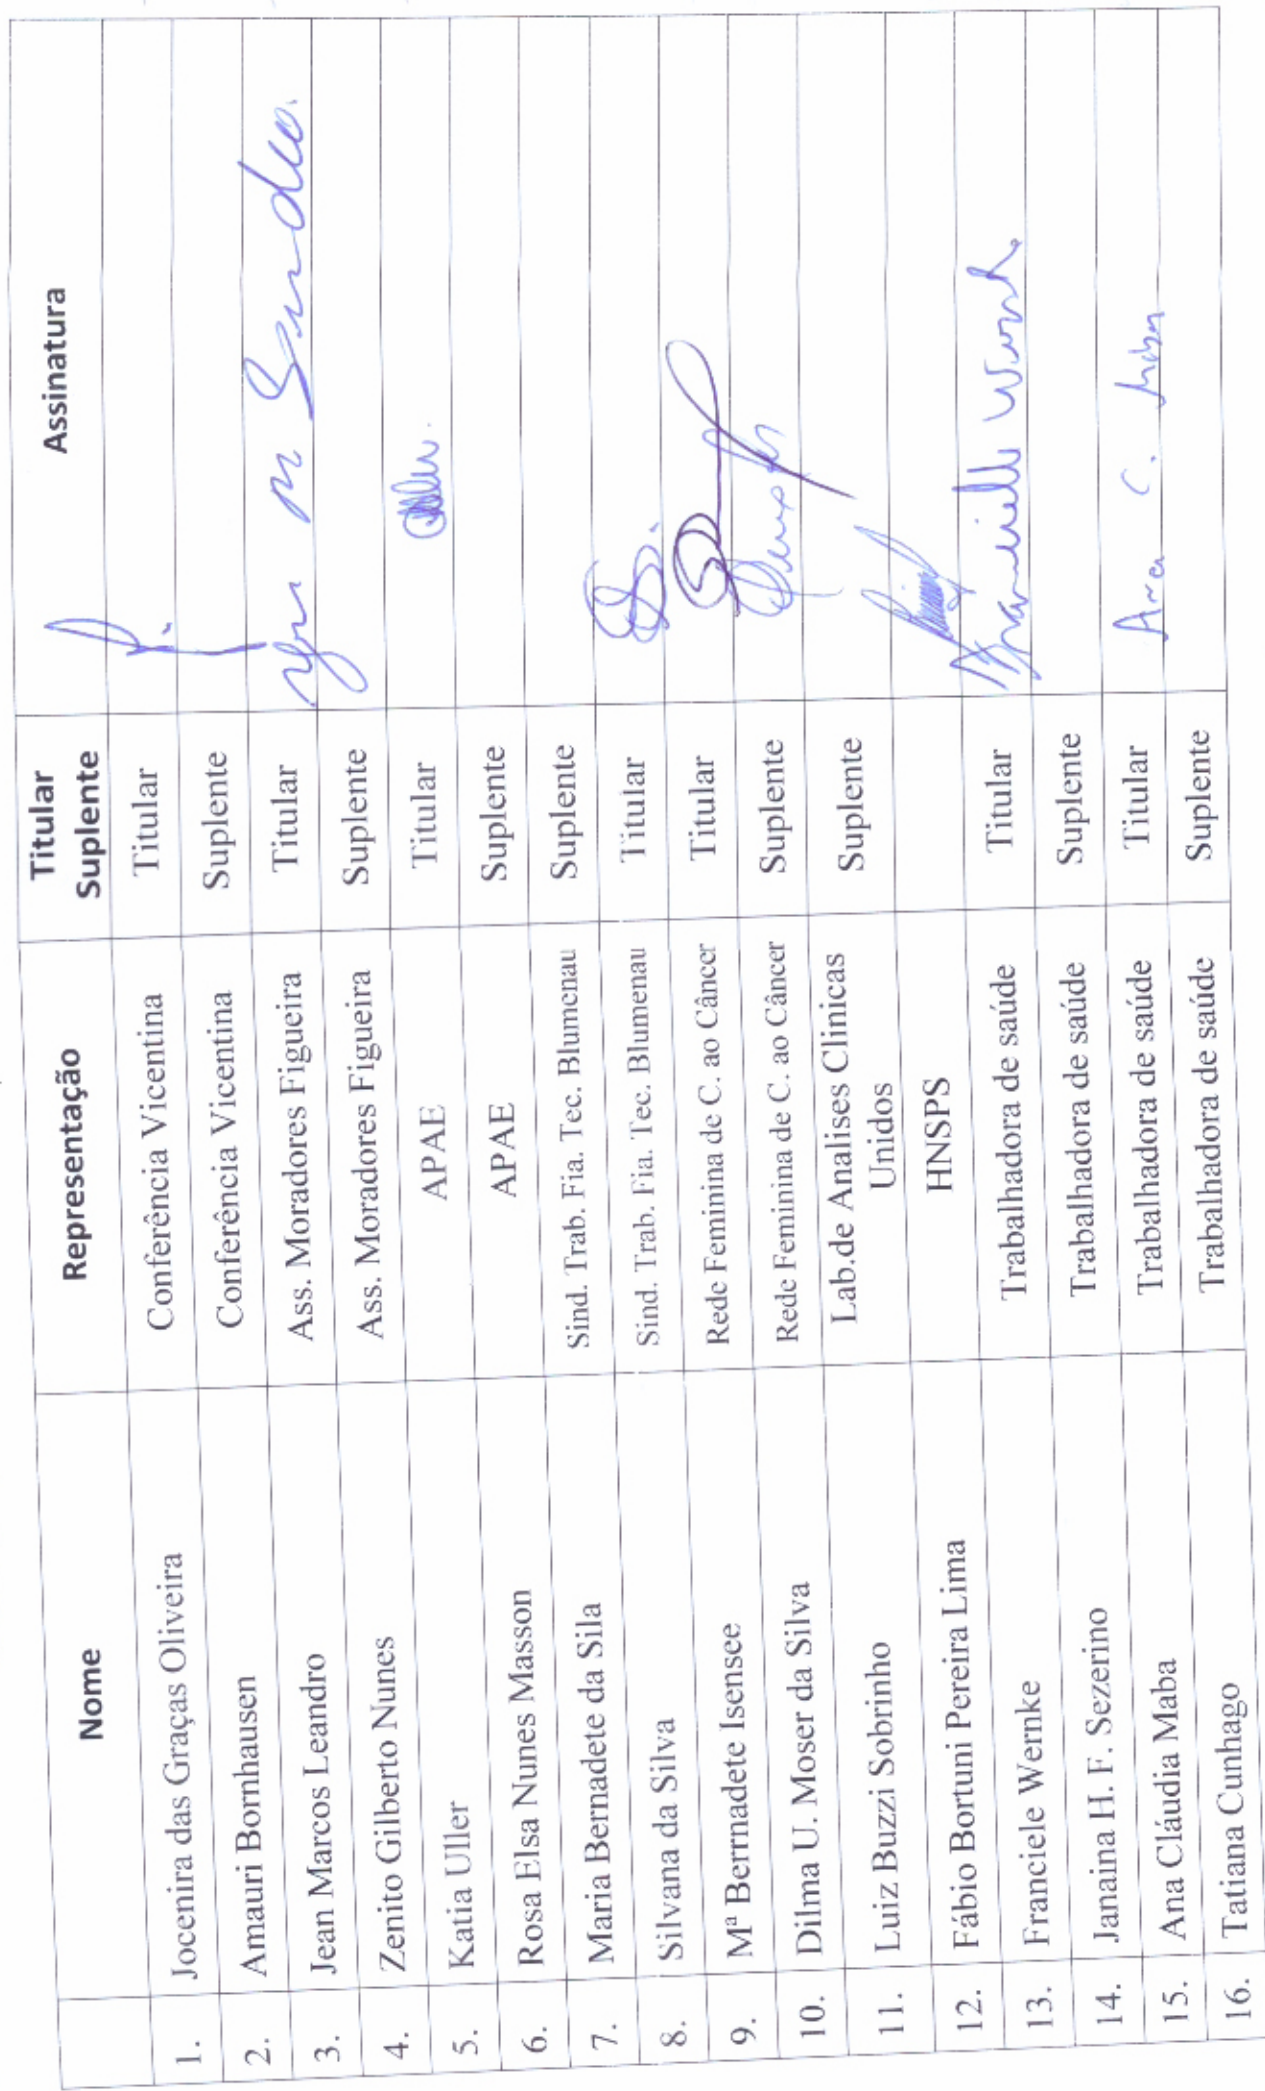 Nome Representação Titular Suplente Assinatura
1. Jocenira das Graças Oliveira Conferência Vicentina Titular
2. Amauri Bornhausen Conferência Vicentina Suplente
3. Jean Marcos Leandro Ass. Moradores Figueira Titular
4. Zenito Gilberto Nunes Ass. Moradores Figueira Suplente
5. Katia Uller APAE Titular
6. Rosa Elsa Nunes Masson APAE Suplente
7. Maria Bernadete da Sila Sind. Trab. Fia. Tec. Blumenau Suplente
8. Silvana da Silva Sind. Trab. Fia. Tec. Blumenau Titular
9. Mª Bernadete Isensee Rede Feminina de C. ao Câncer Titular
10. Dilma U. Moser da Silva Rede Feminina de C. ao Câncer Suplente
11. Luiz Buzzi Sobrinho Lab.de Analises Clinicas Unidos Suplente
12. Fábio Bortuni Pereira Lima HNSPS
13. Franciele Wernke Trabalhadora de saúde Titular
14. Janaina H. F. Sezerino Trabalhadora de saúde Suplente
15. Ana Cláudia Maba Trabalhadora de saúde Titular Ana C. Maba
16. Tatiana Cunhago Trabalhadora de saúde Suplente